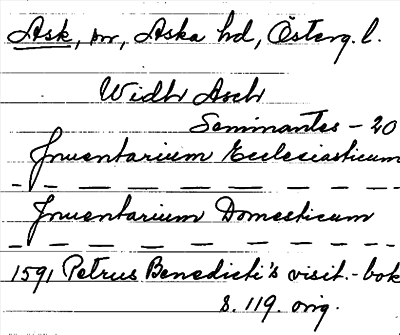 Ask, sn, Aska hd, Österg. l.
Widh Asch
Seminantes - 20
Inventarium Ecclesiasticum
Inventarium Domesticum
1591 Petrus Benedicti's visit.-bok
s. 119. orig.